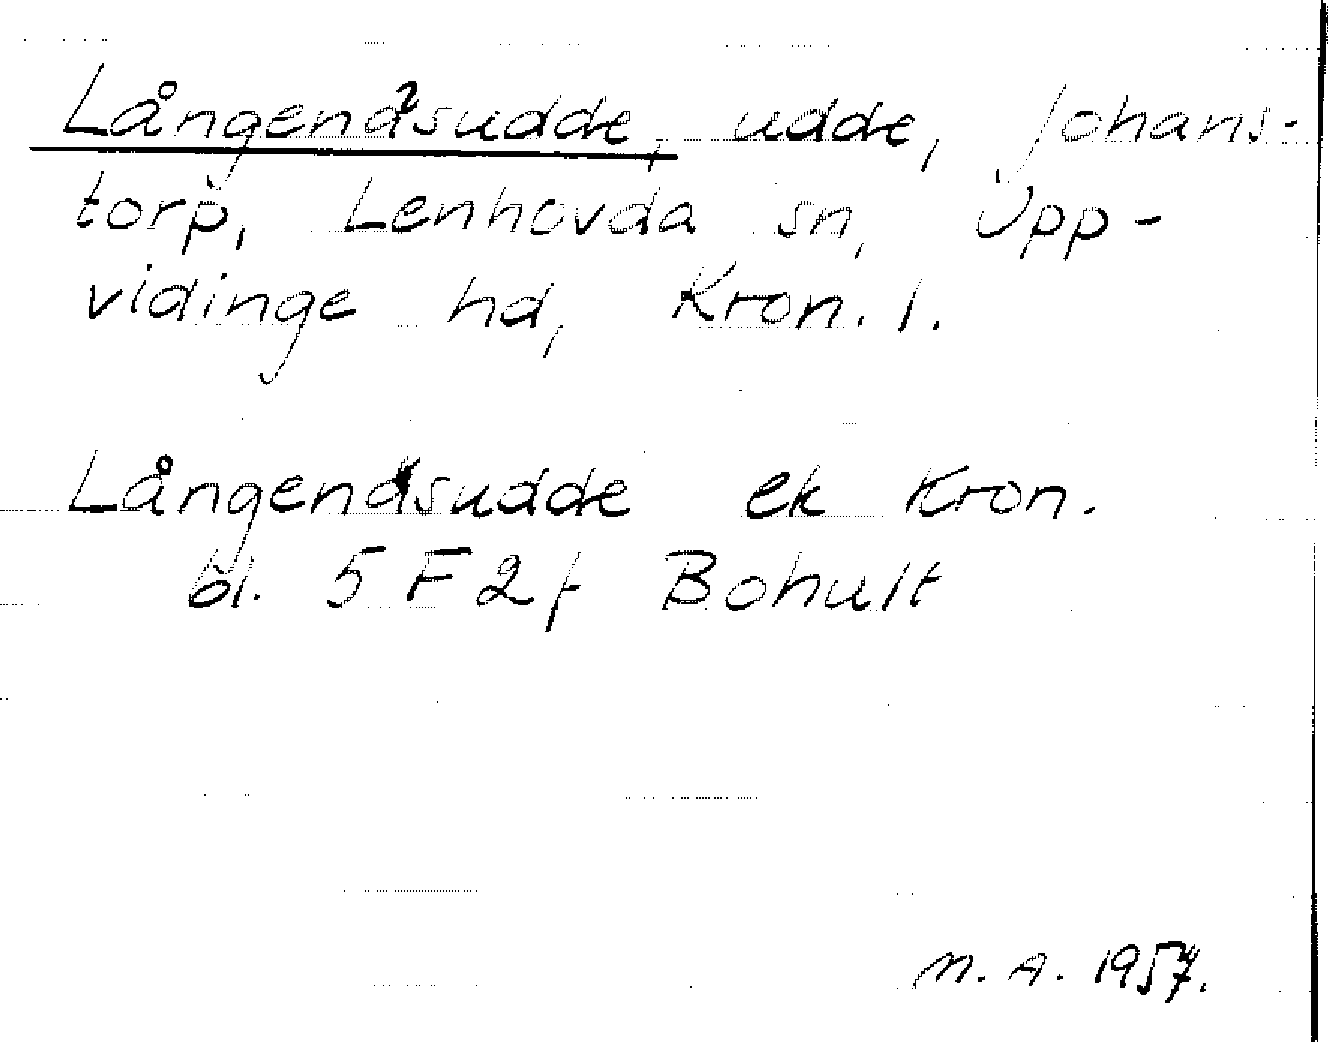 Långendsudde, udde, Johans-
torp, Lenhovda sn, Upp-
vidinge hd, Kron. l.
Långendsudde ek Kron.
bl. 5 F 2 f Bohult
M. A. 1957.